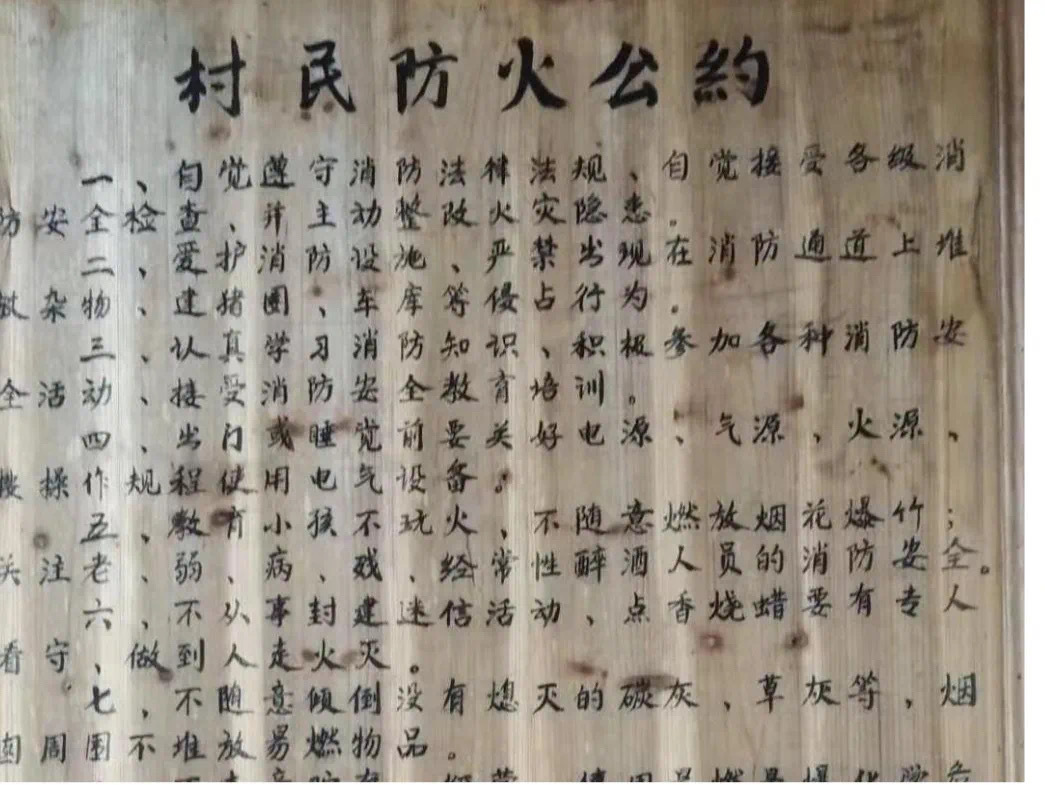 村民防火公約
一、自觉遵守消防法律法规、自觉接受各级消
防安全检查、并主动整改火灾隐患。
二、爱护消防设施、严禁出现在消防通道上堆
放杂物、建猪圈、车库等侵占行为。
三、认真学习消防知识、积极参加各种消防安
全活动、接受消防安全教育培训。
四、出门或睡觉前要关好电源、气源、火源、
按操作规程使用电气设备。
五、教育小孩不玩火、不随意燃放烟花爆竹；
关注老、弱、病、残、经常性醉酒人员的消防安全。
六、不从事封建迷信活动、点香烧蜡要有专人
看守、做到人走火灭。
七、不随意倾倒没有熄灭的碳灰、草灰等，烟
囱周围不堆放易燃物品。